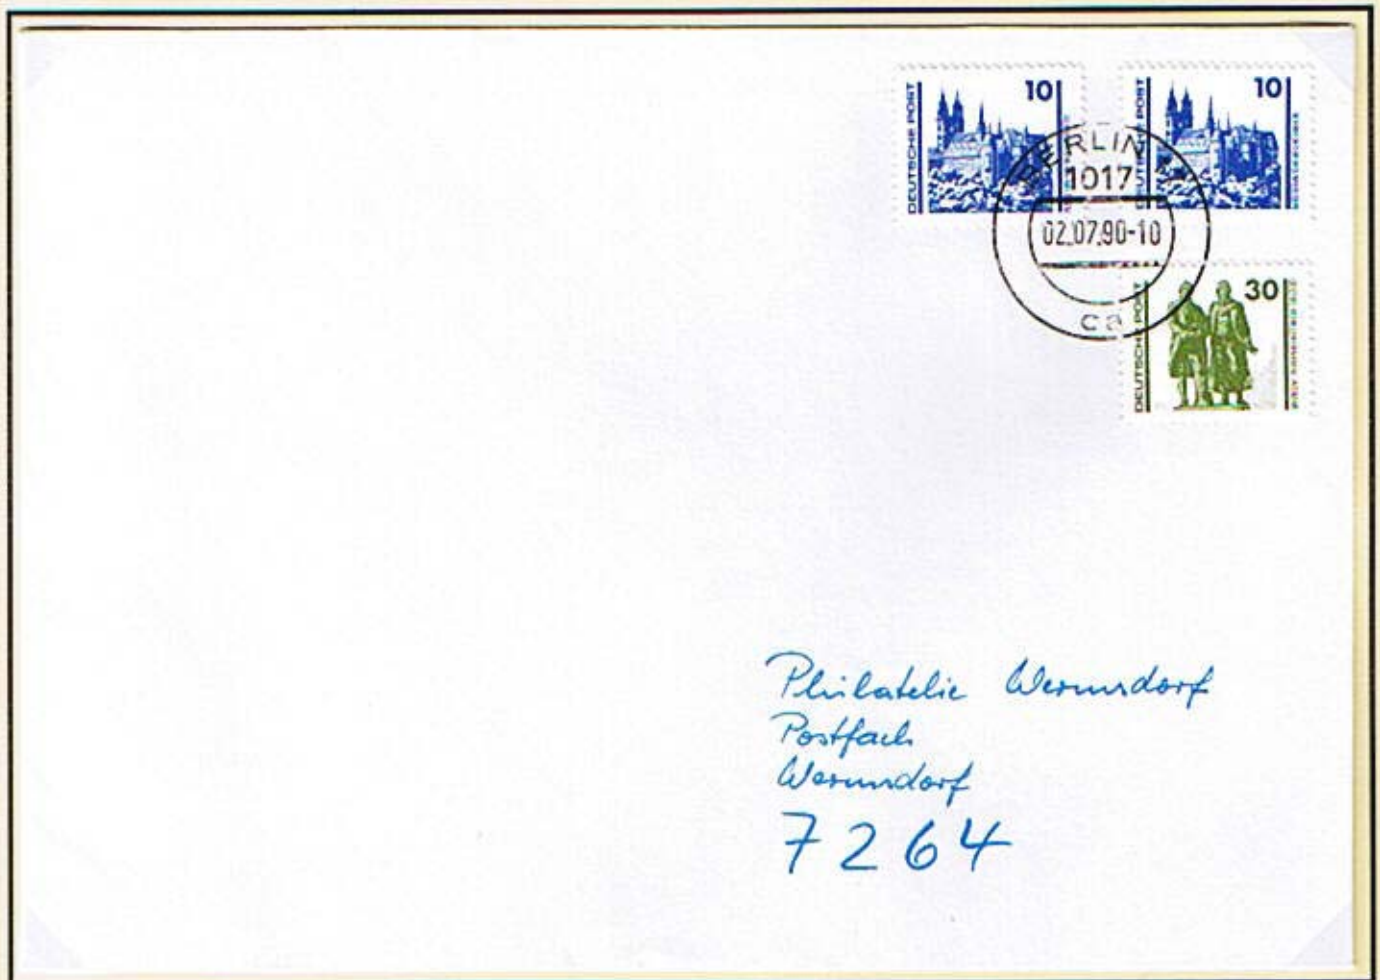 DEUTSCHE POST
10
DEUTSCHE POST
10
BERLIN
1017
02.07.90-10
ca
DEUTSCHE POST
30
Philatelie Wermsdorf
Postfach
Wermsdorf
7264